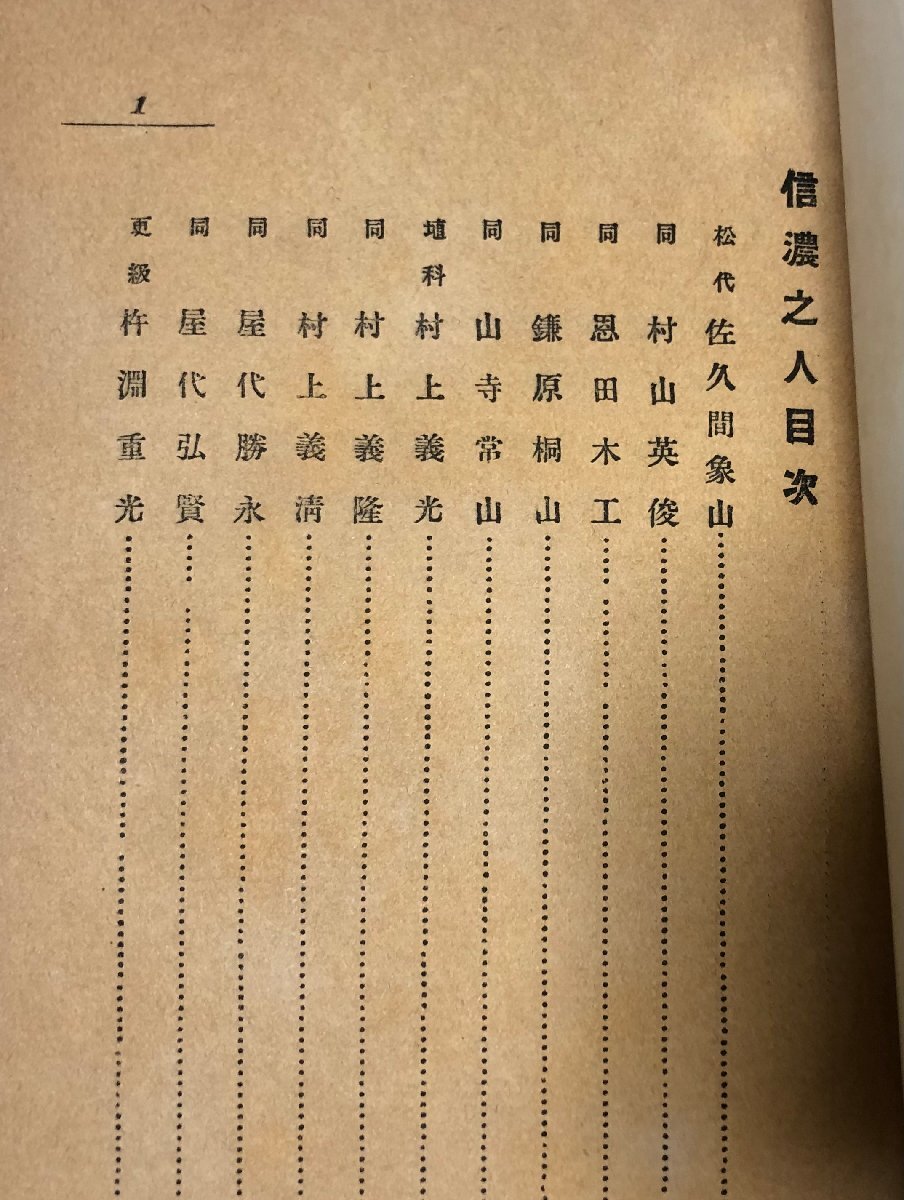 信濃之人目次
松代 佐久間象山
同 村山英俊
同 恩田木工
同 鎌原桐山
同 山寺常山
埴科 村上義光
同 村上義隆
同 村上義清
同 屋代勝永
同 屋代弘賢
更級 杵淵重光
1